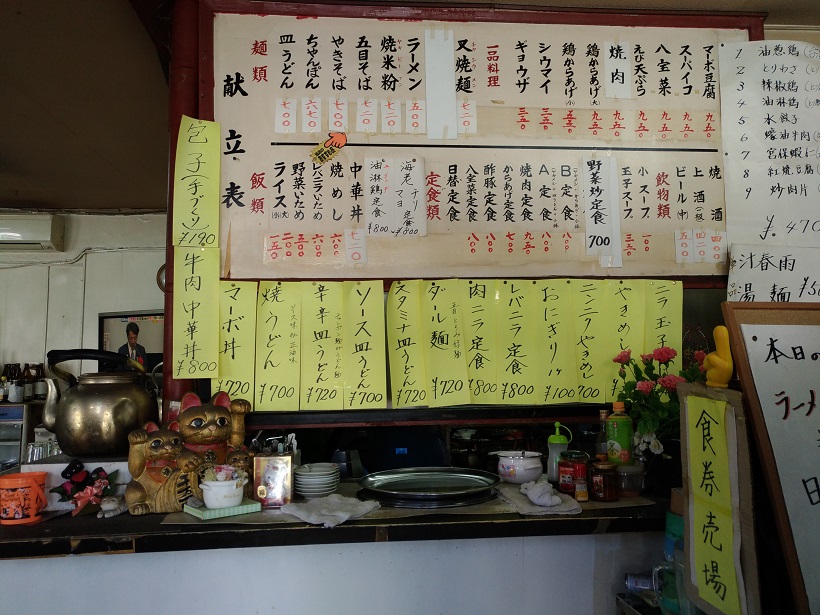 献立表
麺類
ラーメン 五〇〇
焼米粉 七二〇
五目そば 七二〇
やきそば 七〇〇
ちゃんぽん 六七〇
皿うどん 七〇〇
叉焼麺 七二〇
一品料理
マーボ豆腐 九五〇
スーパイコ 九五〇
八宝菜 九五〇
えび天ぷら 九五〇
焼肉 九五〇
鶏からあげ(大) 九五〇
鶏からあげ(小)
シウマイ 三五〇
ギョウザ 三五〇
飯類
中華丼 七二〇
焼めし 六〇〇
レバニラいため 六〇〇
野菜いため 五〇〇
ライス(大) 二〇〇
(小) 一五〇
油淋鶏定食 ¥800
海老チリマヨ定食 ¥800
定食類
日替定食
八宝菜定食 八〇〇
酢豚定食 八〇〇
からあげ定食 七五〇
焼肉定食 九五〇
A定食 八〇〇
B定食 八〇〇
野菜炒定食 700
玉子スープ 三五〇
小スープ 一〇〇
飲物類
ビール(中) 五五〇
上酒(一級) 四二〇
焼酒 四〇〇
包子(手づくり) ¥190
牛肉中華丼 ¥800
マーボ丼 ¥720
焼うどん ソース味or正油味 ¥700
辛辛皿うどん ¥720
ソース皿うどん ¥700
スタミナ皿うどん ¥720
ダール麺 ¥720
肉ニラ定食 ¥800
レバニラ定食 ¥800
おにぎり1ケ ¥100
ニンニクやきめし 700
やきめし
ニラ玉子
1 油葱鶏
2 とりわさ
3 辣椒鶏
4 油淋鶏
5 水餃子
6 蠔油牛肉
7 宮保蝦仁
8 紅焼豆腐
9 炒肉片
¥.470
汁春雨
湯麺
本日の
ラーメ
日
食券売場